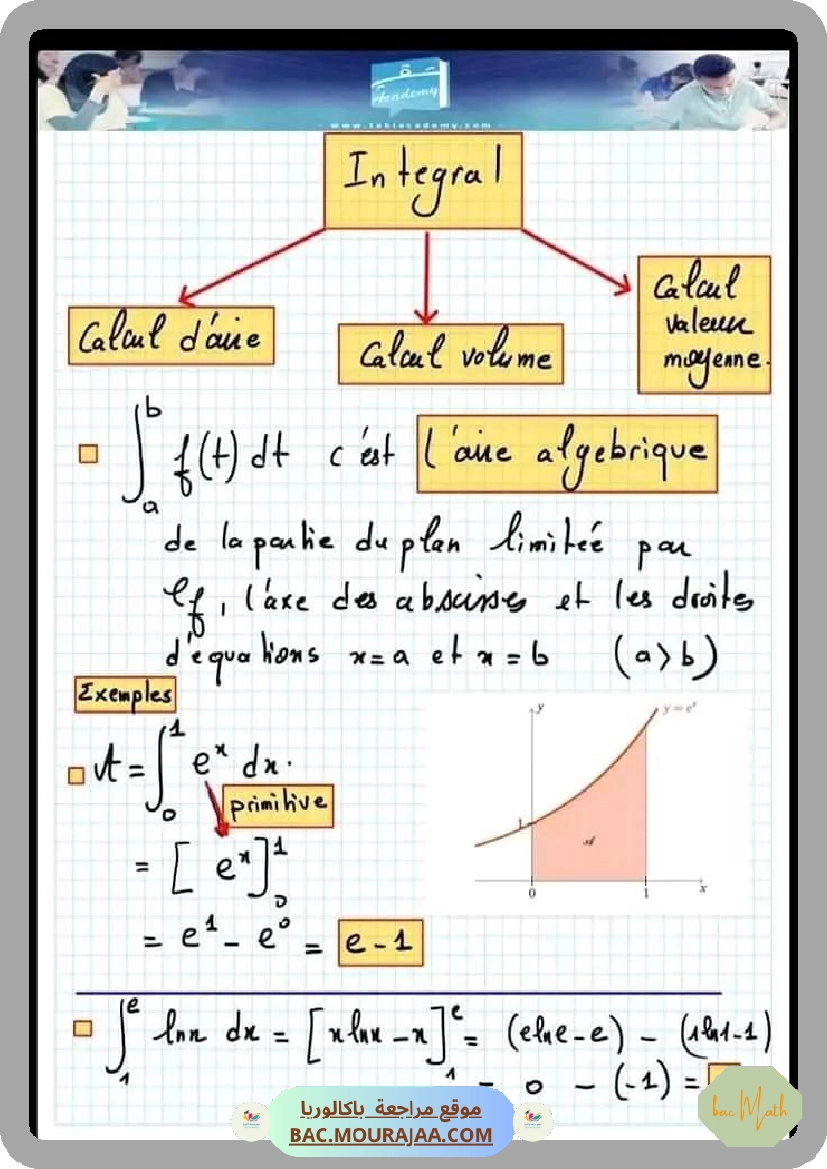 Academy
- www.tobiacademy.com -
Integral
Calcul d'aire
Calcul volume
Calcul
valeur
moyenne.
∫_a^b f(t) dt c'est l'aire algebrique
de la partie du plan limiteé par
𝒞f, l'axe des abscisses et les droites
d'équations x = a et x = b (a > b)
Exemples
A = ∫_0^1 e^x dx.
primitive
= [ e^x ]_0^1
= e^1 - e^0 = e - 1
y
y = e^x
1
𝒜
0 1 x
∫_1^e lnx dx = [xlnx - x]_1^e = (elne - e) - (1ln1 - 1)
= 0 - (-1) =
bacMath
موقع مراجعة باكالوريا
BAC.MOURAJAA.COM